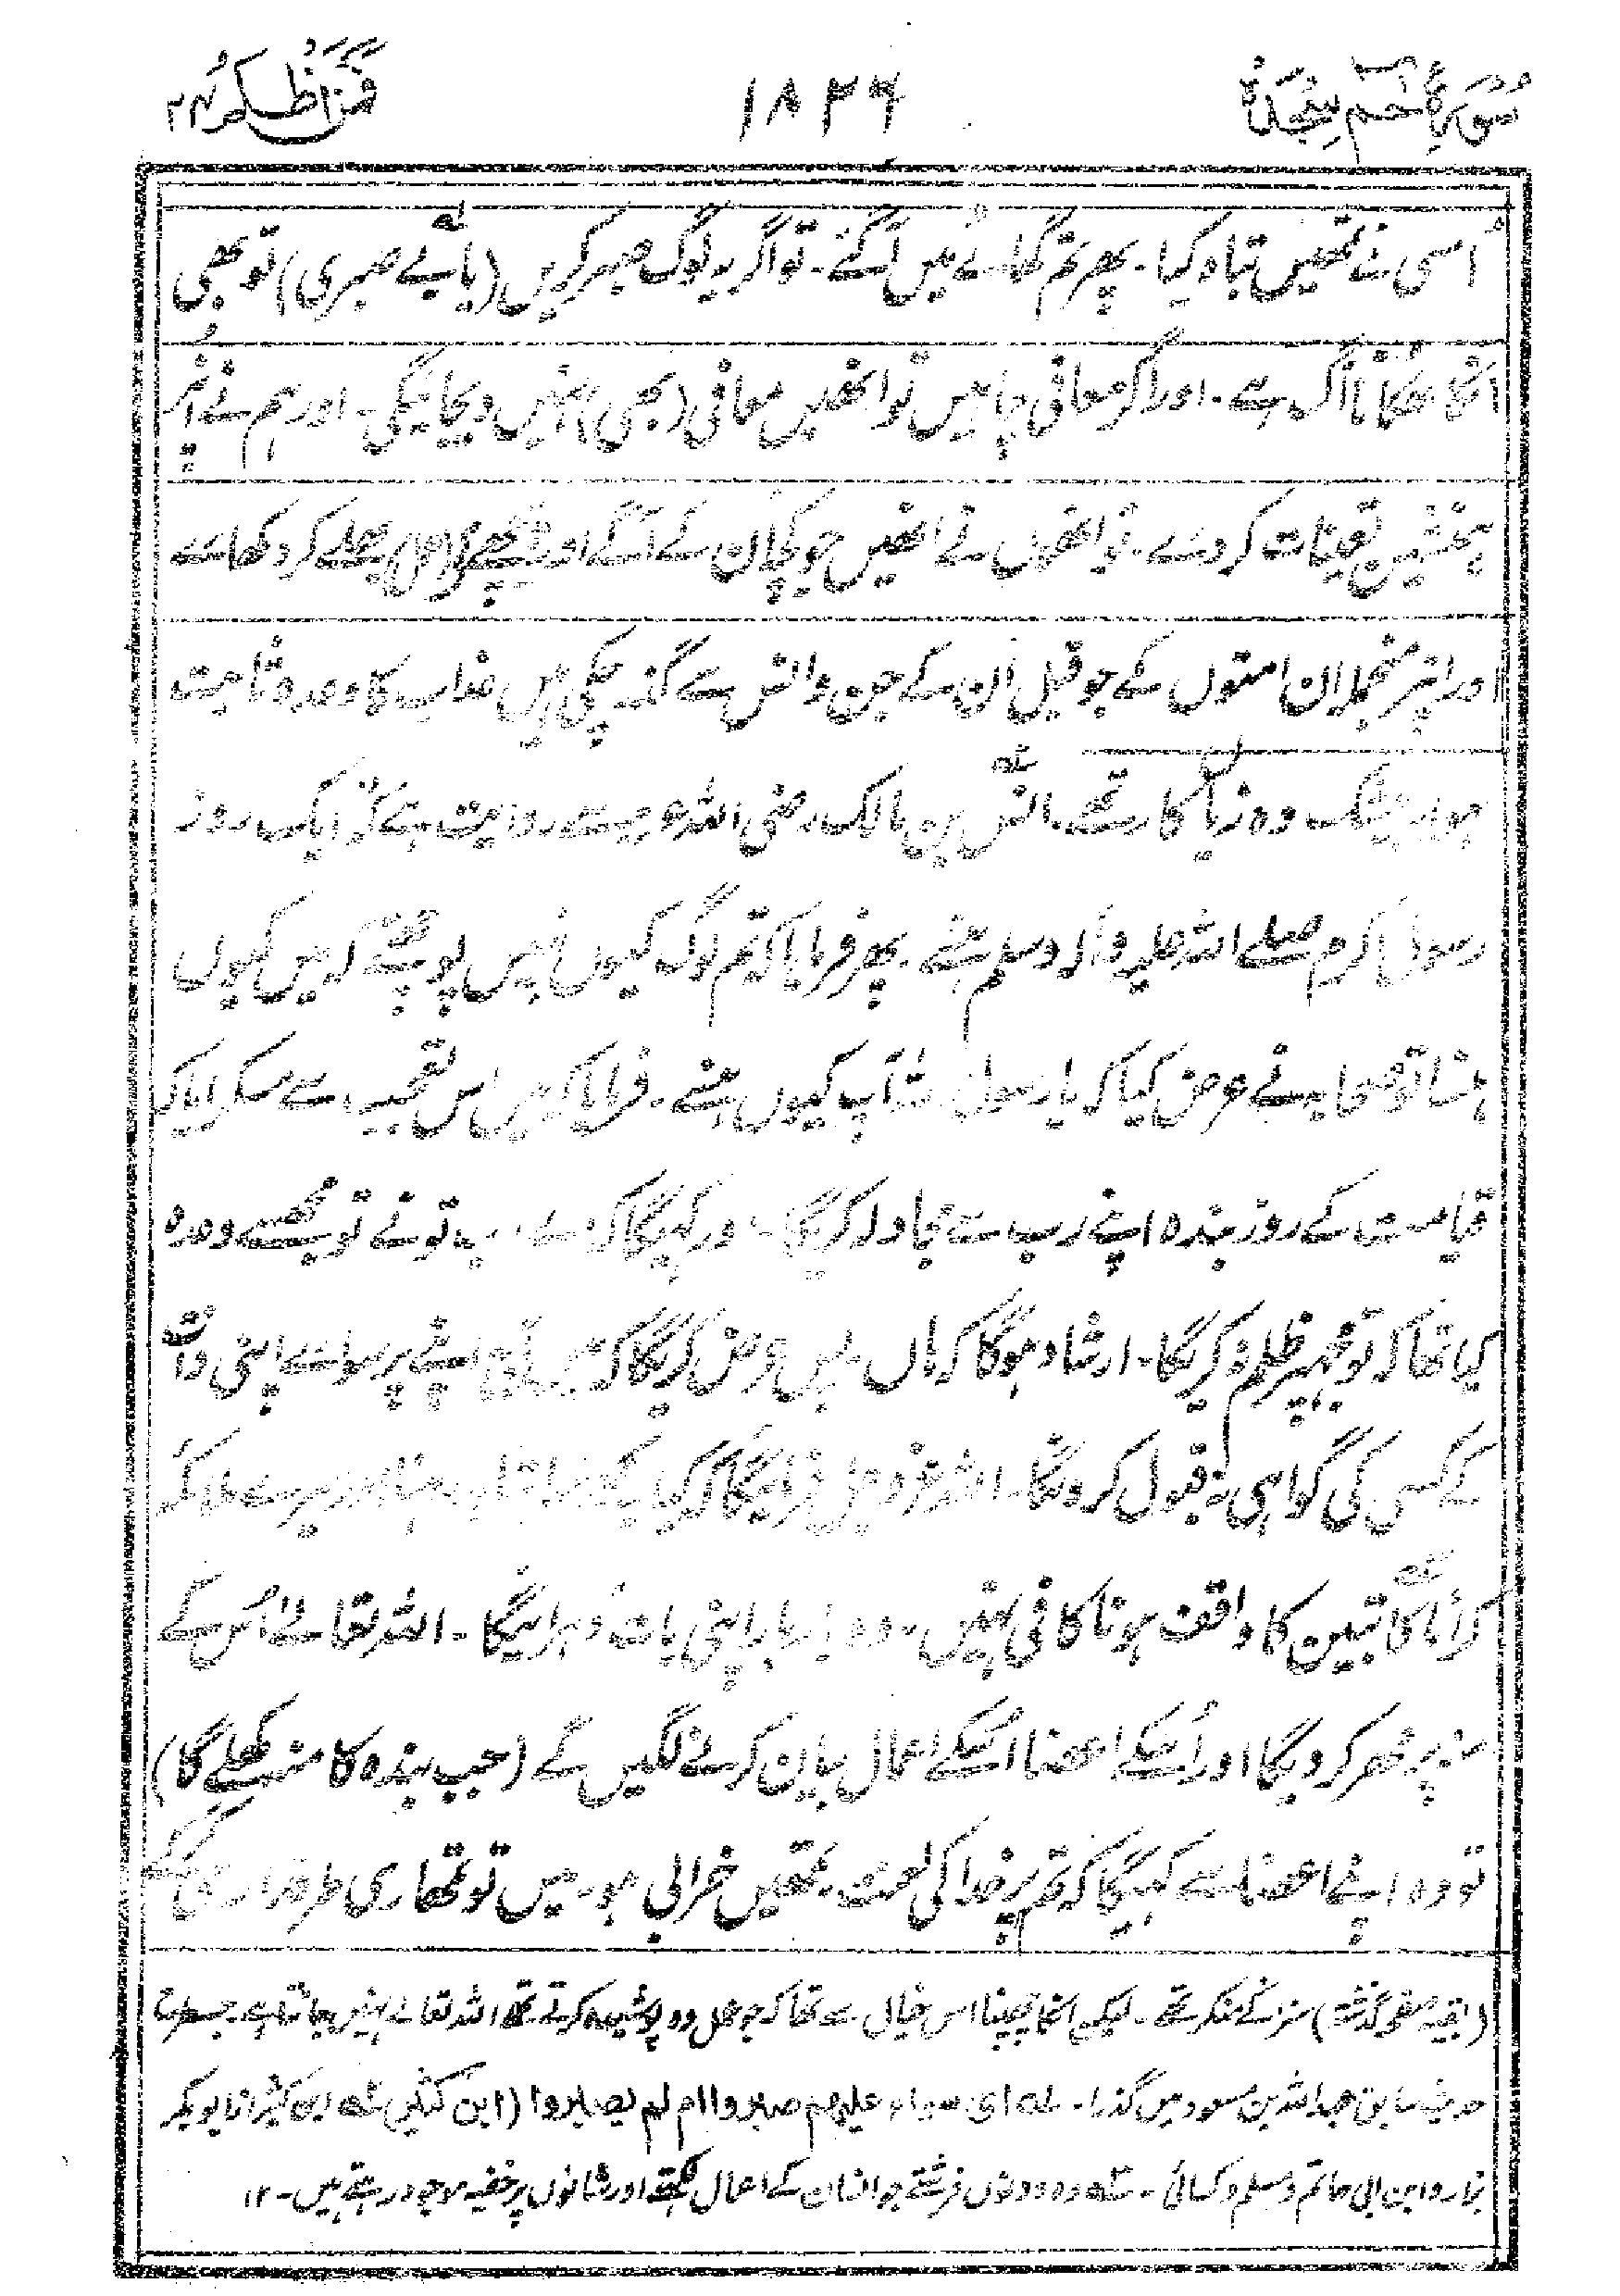 سورۃ حٰم سجدۃ ۱۸۲۶ فمن اظلم ۲۴
اُسی نے تمھیں تباہ کیا۔ پھر تم گھاٹے میں آگئے۔ تو اگر یہ لوگ صبر کریں (یا بے صبری) تو بھی
انکا ٹھکانا آگ ہے۔ اور اگر معافی چاہیں تو انھیں معافی (بھی) نہیں دیجائیگی۔ اور ہم نے اُنپر
ہمنشین تعینات کردئے۔ تو انھوں نے انھیں جو کچھ ان کے آگے اور پیچھے تھا بھلے کر دکھائے
اور انپر منجملہ ان امتوں کے جو قبل ان کے جن و انس سے گذر چکی ہیں عذاب کا وعدہ ثابت
ہوا۔ بیشک وہ زیاں کار تھے۔ انسؓ بن مالک رضی اللہ عنہ سے روایت ہے کہ ایک روز
رسول اکرم صلے اللہ علیہ وآلہ وسلم ہنسے۔ پھر فرمایا کہ تم لوگ کیوں نہیں پوچھتے کہ میں کیوں
ہنسا تو صحابہ نے عرض کیا کہ یا رسول اللہ آپ کیوں ہنسے۔ فرمایا کہ میں اس تعجب سے مسکرایا کہ
قیامت کے روز بندہ اپنے رب سے مجادلہ کریگا۔ اور کہیگا کہ اے رب تونے تو مجھسے وعدہ
کیا تھا کہ تو مجھپر ظلم نہ کریگا۔ ارشاد ہوگا کہ ہاں۔ پس عرض کریگا کہ میں اپنے پر سوائے اپنی ذات
کے کسی کی گواہی نہ قبول کرونگا۔ اللہ عزوجل فرمائیگا کہ کیا میرے ملائکہ
کراماً کاتبین کا واقف ہونا کافی نہیں۔ وہ بار بار اپنی بات دُہرائیگا۔ اللہ تعالےٰ اُس کے
منہ پر مُہر کردیگا اور اُسکے اعضا اُسکے اعمال بیان کرنے لگیں گے (جب بندہ کا منہ کھلے گا)
تو وہ اپنے اعضا سے کہیگا کہ تم پر خدا کی لعنت۔ تمھیں خرابی ہو۔ میں تو تمھاری طرفداری
(بقیہ صفحہ گذشتہ) منکر تھے۔ لیکن انکا چھپنا اس خیال سے تھا کہ جو عمل وہ پوشیدہ کرتے تھے اللہ تعالےٰ نہیں جانتا ہے۔ جسطرح
حدیث سابق عبداللہ بن مسعود میں گذرا۔ لہ ای سواء علیھم صبروا ام لم یصبروا (ابن کثیر) ابن کثیر انا ابوبکر
بزار و ابن ابی حاتم و مسلم و نسائی۔ وہ دونوں فرشتے جو انسان کے اعمال لکھتے اور شانوں پر خفیہ موجود رہتے ہیں۔۱۲